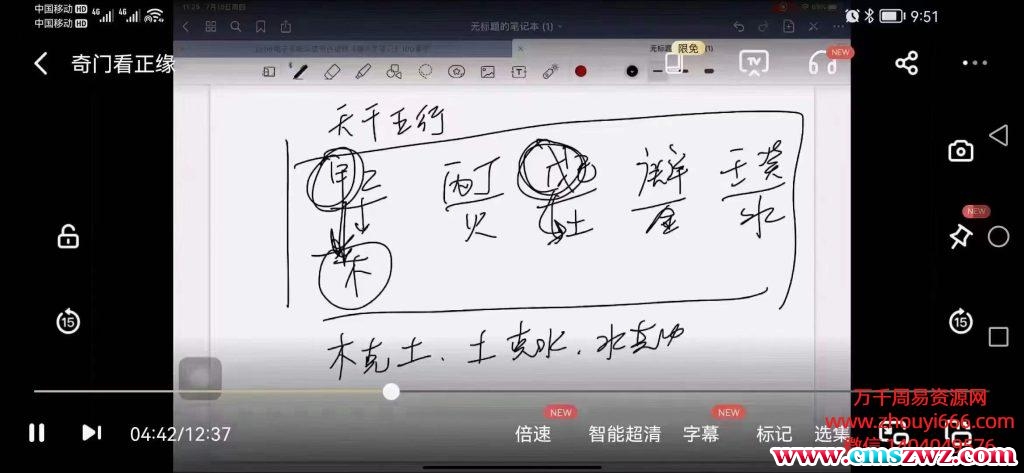 中国移动 HD 4G 4G
中国移动 HD
9:51
11:25 7月15日周四
69%
无标题的笔记本 (1)
无标题
(1)
限免
奇门看正缘
TV
NEW
天干五行
甲乙 丙丁 戊己 庚辛 壬癸
木 火 土 金 水
木克土、土克水、水克
15
15
NEW
04:42/12:37
倍速
NEW
智能超清
字幕
NEW
标记
选集
万千周易资源网
www.zhouyi666.com
www.cmszwz.com